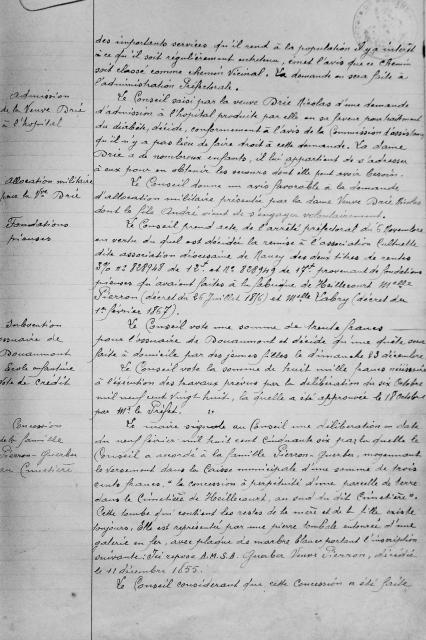 des importants services qu'il rend à la population il y a intérêt
à ce qu'il soit régulièrement entretenu, émet l'avis que ce chemin
soit classé comme chemin Vicinal. La demande en sera faite à
l'administration Préfectorale.
Admission
de la Veuve Drié
à l'hopital
Le Conseil saisi par la veuve Drié Nicolas d'une demande
d'admission à l'hôpital produite par elle en sa faveur pour traitement
du diabète, décide, conformément à l'avis de la Commission d'assistance
qu'il n'y a pas lieu de faire droit à cette demande. La dame
Drié a de nombreux enfants, il lui appartient de s'adresser
à eux pour en obtenir les secours dont elle peut avoir besoin.
Allocation militaire
pour la Vve Drié
Le Conseil donne un avis favorable à la demande
d'allocation militaire présentée par la dame Veuve Drié Nicolas
dont le fils André vient de s'engager volontairement.
Fondations
pieuses
Le Conseil prend acte de l'arrêté préfectoral du 5 Novembre
en vertu du quel est décidé la remise à l'association Cultuelle
dite association diocésaine de Nancy des deux titres de rentes
3% no 828948 de 12f. et No 828949 de 17f. provenant de fondations
pieuses qu'avaient faites à la fabrique de Heillecourt Melle
Pierron (décret du 26 Juillet 1876) et Melle Labry (décret du
1er février 1867).
ossuaire de
Douaumont
Le Conseil vote une somme de trente francs
pour l'ossuaire de Douaumont et décide qu'une quête sera
faite à domicile par des jeunes filles le dimanche 23 décembre.
Ecole enfantine
Vote de crédit
Le Conseil vote la somme de huit mille francs nécessaire
à l'exécution des travaux prévus par la délibération du six Octobre
mil neuf cent vingt-huit, la quelle a été approuvée le 18 octobre
par Mr le Préfet. "
Concession
de la famille
Pierron-Guerber
au Cimetière
Le maire signale au Conseil une délibération en date
du neuf février mil huit cent cinquante six par la quelle le
Conseil a accordé à la famille Pierron-Guerber, moyennant
le versement dans la Caisse municipale d'une somme de trois
cents francs, "la concession à perpétuité d'une parcelle de terre
dans le Cimetière de Heillecourt, au sud du dit Cimetière".
Cette tombe qui contient les restes de la mère et de la fille existe
toujours. Elle est représentée par une pierre tombale entourée d'une
galerie en fer, avec plaque de marbre blanc portant l'inscription
suivante: Ici repose A.M.S.A. Guerber Veuve Pierron, décédée
le 11 décembre 1855.
Le Conseil considérant que cette Concession a été faite